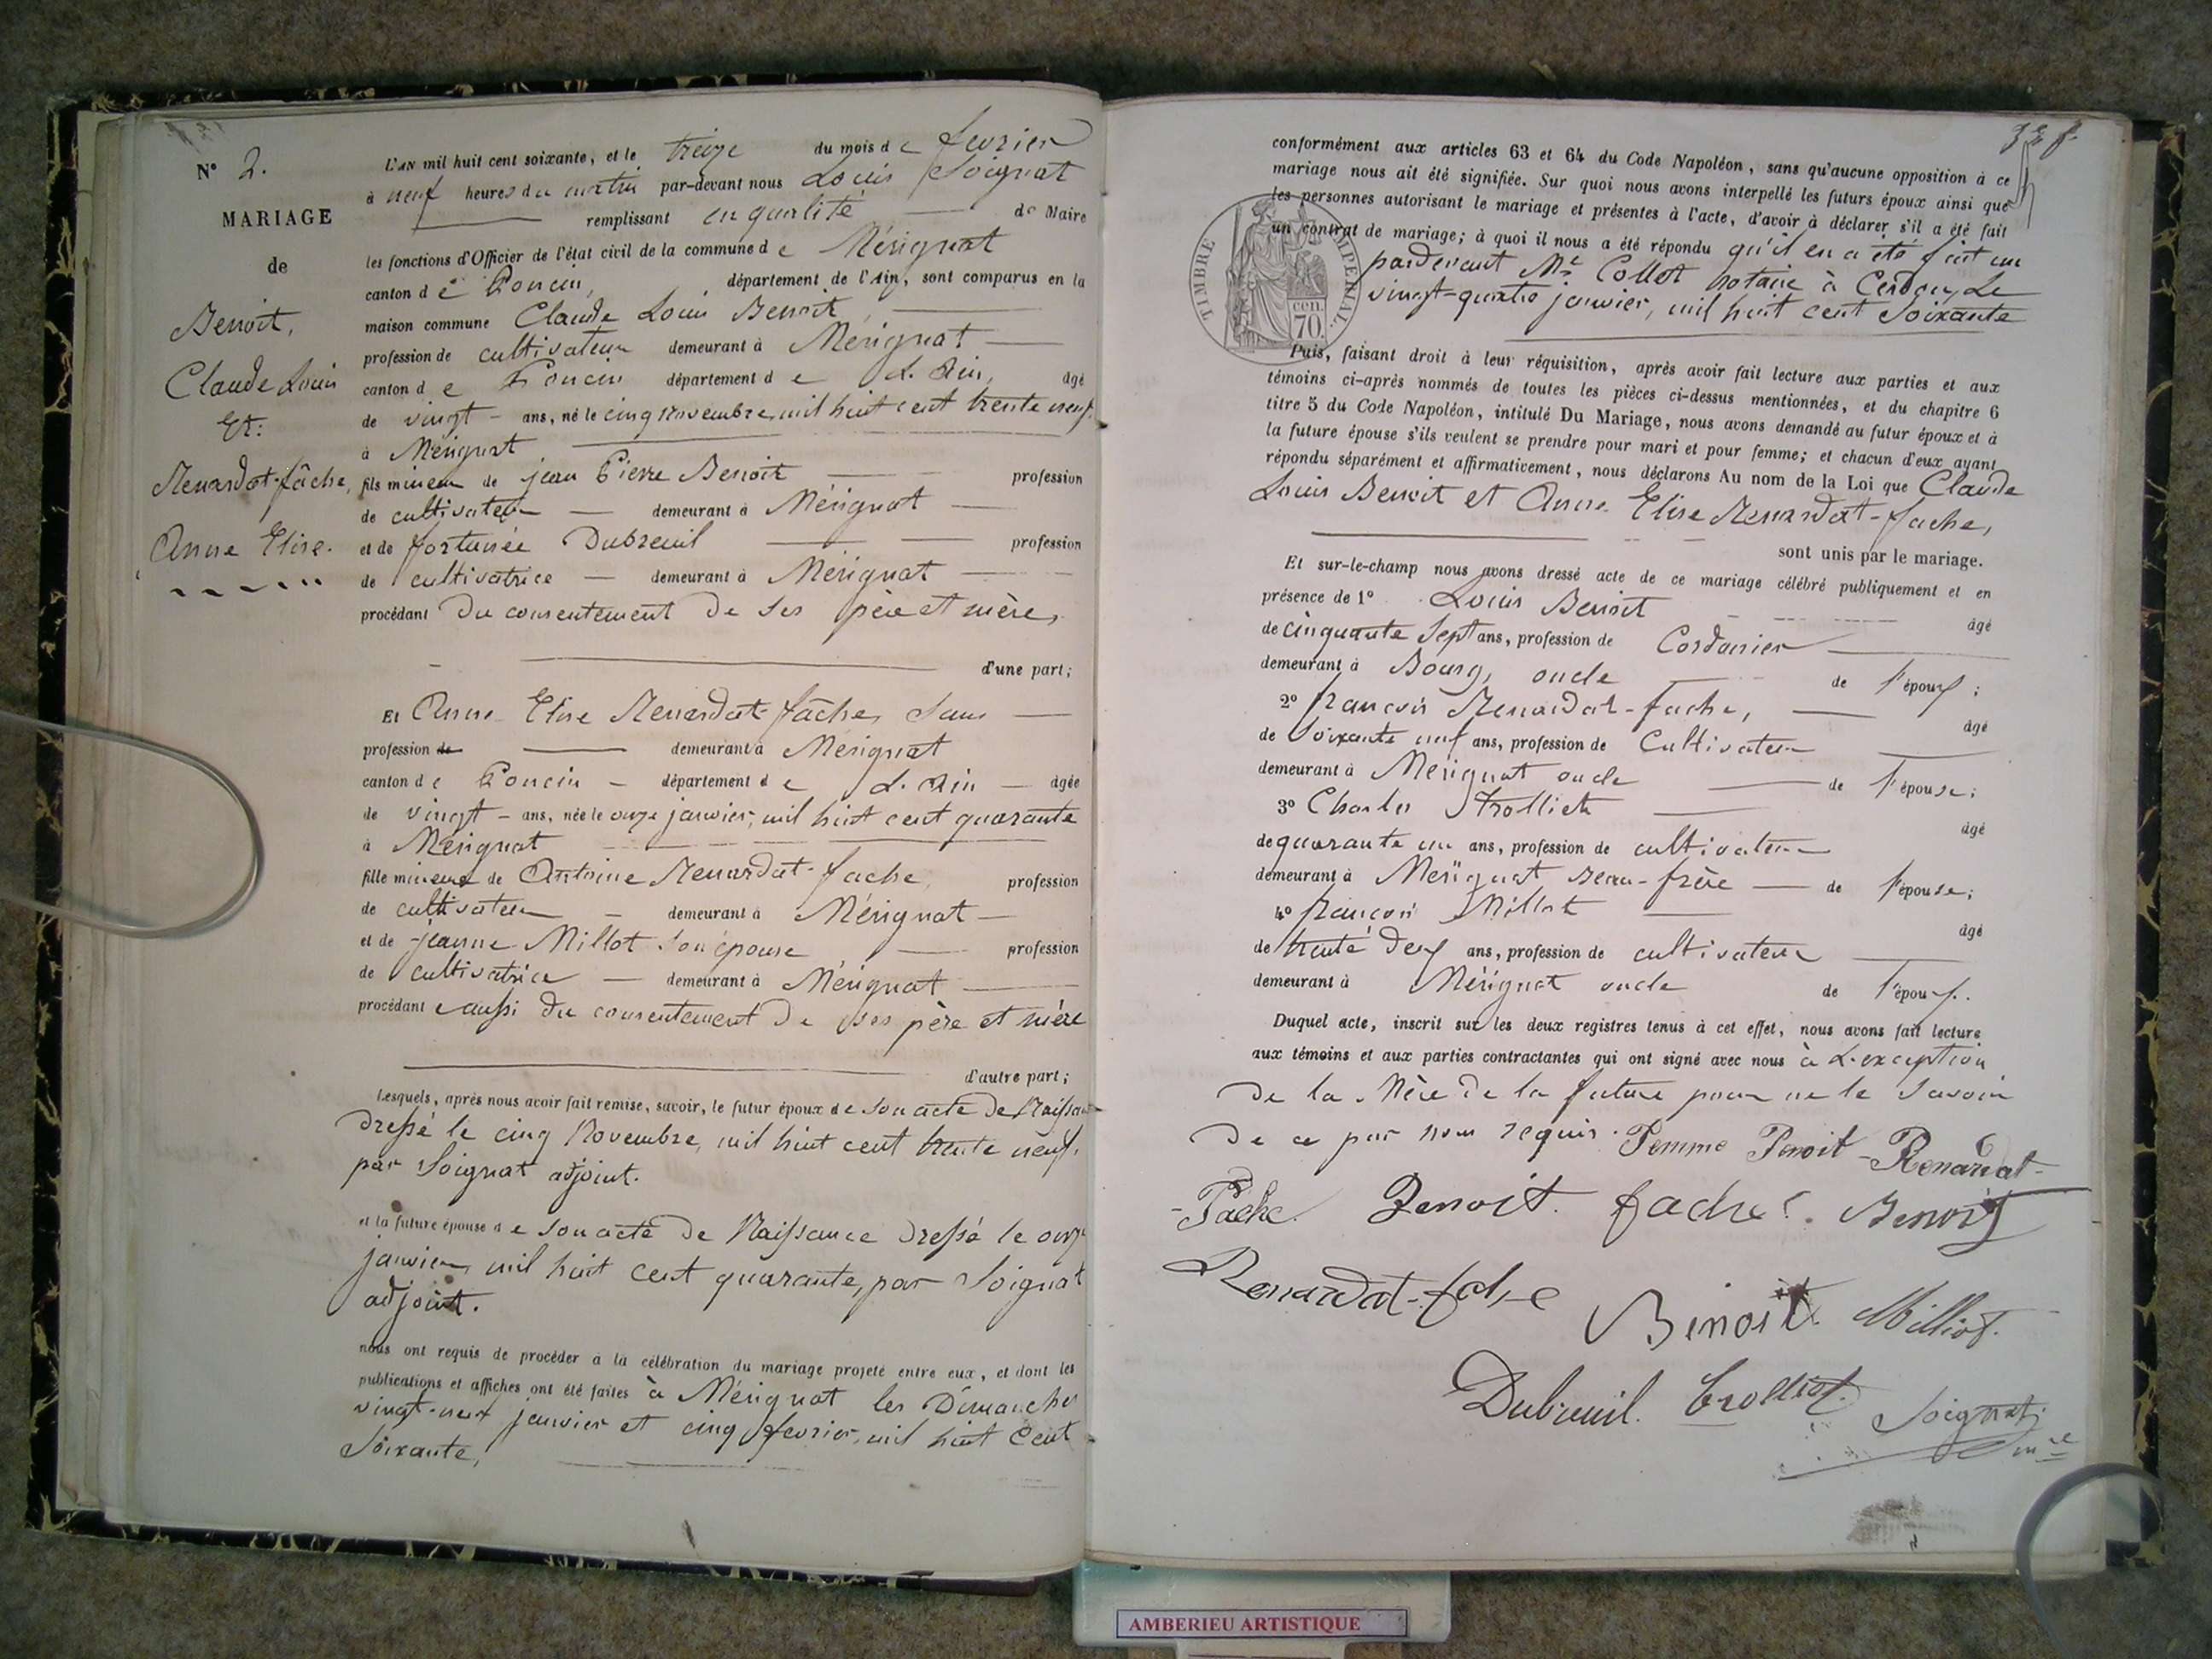 N° 2.
MARIAGE
de
Benoit,
Claude Louis
Et:
Renardat-fâche,
Anne Elise.
L'AN mil huit cent soixante, et le treize du mois de fevrier
à neuf heures du matin par-devant nous Louis Soignat
remplissant en qualité de Maire
les fonctions d'Officier de l'état civil de la commune de Mérignat
canton de Poncin, département de l'Ain, sont comparus en la
maison commune Claude Louis Benoit,
profession de cultivateur demeurant à Mérignat
canton de Poncin département de L'Ain, âgé
de vingt - ans, né le cinq novembre, mil huit cent trente neuf
à Mérignat
fils mineur de jean Pierre Benoit profession
de cultivateur demeurant à Mérignat
et de fortunée Dubreuil profession
de cultivatrice demeurant à Mérignat
procédant du consentement de ses père et mère,
d'une part;
Et Anne Elise Renardat-fâche, sans
profession de demeurant à Mérignat
canton de Poncin - département de L'Ain - âgée
de vingt - ans, née le onze janvier, mil huit cent quarante
à Mérignat
fille mineure de Antoine Renardat-fache, profession
de cultivateur demeurant à Mérignat
et de jeanne Millot son épouse profession
de cultivatrice demeurant à Mérignat
procédant aussi du consentement de ses père et mère
d'autre part;
Lesquels, après nous avoir fait remise, savoir, le futur époux de son acte de Naissan
dressé le cinq Novembre, mil huit cent trente neuf,
par Soignat adjoint.
et la future épouse de son acte de Naissance dressé le onze
janvier, mil huit cent quarante, par Soignat
adjoint.
nous ont requis de procéder à la célébration du mariage projeté entre eux, et dont les
publications et affiches ont été faites à Mérignat les Dimanches
vingt-neuf janvier et cinq fevrier, mil huit cent
Soixante,
conformément aux articles 63 et 64 du Code Napoléon, sans qu'aucune opposition à ce
mariage nous ait été signifiée. Sur quoi nous avons interpellé les futurs époux ainsi que
les personnes autorisant le mariage et présentes à l'acte, d'avoir à déclarer s'il a été fait
un contrat de mariage; à quoi il nous a été répondu qu'il en a été fait un
pardevant Me Collot notaire à Cerdon, Le
vingt-quatre janvier, mil huit cent Soixante
TIMBRE IMPERIAL.
70 cen.
Puis, faisant droit à leur réquisition, après avoir fait lecture aux parties et aux
témoins ci-après nommés de toutes les pièces ci-dessus mentionnées, et du chapitre 6
titre 5 du Code Napoléon, intitulé Du Mariage, nous avons demandé au futur époux et à
la future épouse s'ils veulent se prendre pour mari et pour femme; et chacun d'eux ayant
répondu séparément et affirmativement, nous déclarons Au nom de la Loi que Claude
Louis Benoit et Anne Elise Renardat-fache,
sont unis par le mariage.
Et sur-le-champ nous avons dressé acte de ce mariage célébré publiquement et en
présence de 1° Louis Benoit âgé
de cinquante sept ans, profession de Cordonnier
demeurant à Bourg, oncle de l'époux;
2° françois Renardat-fache, âgé
de soixante neuf ans, profession de Cultivateur
demeurant à Mérignat oncle de l'épouse;
3° Charles Trolliet âgé
de quarante un ans, profession de cultivateur
demeurant à Mérignat Beau-frère de l'épouse;
4° françois Millot âgé
de trente deux ans, profession de cultivateur
demeurant à Mérignat oncle de l'époux.
Duquel acte, inscrit sur les deux registres tenus à cet effet, nous avons fait lecture
aux témoins et aux parties contractantes qui ont signé avec nous à L'exception
de la Mère de la future pour ne le savoir
de ce par nous requis. Femme Benoit - Renardat-
-Fache. Benoit. fache. Benoit
Renardat-fache Benoit. Milliot.
Dubreuil. trolliet. Soignat
AMBERIEU ARTISTIQUE